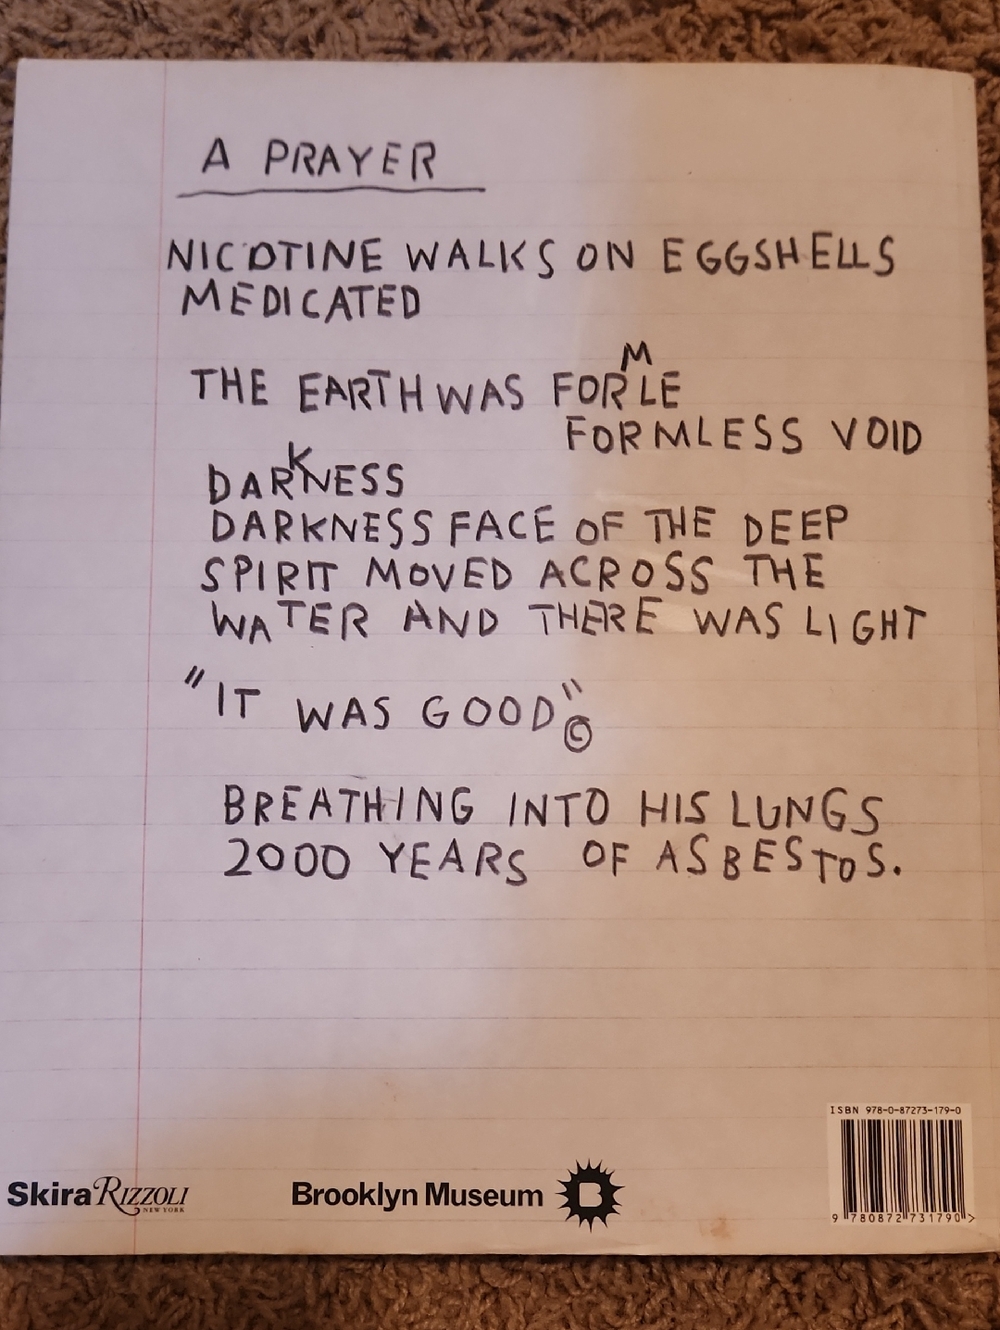 A PRAYER
NICOTINE WALKS ON EGGSHELLS
MEDICATED
M
THE EARTH WAS FORLE
FORMLESS VOID
K
DARNESS
DARKNESS FACE OF THE DEEP
SPIRIT MOVED ACROSS THE
WATER AND THERE WAS LIGHT
"IT WAS GOOD"©
BREATHING INTO HIS LUNGS
2000 YEARS OF ASBESTOS.
ISBN 978-0-87273-179-0
Skira RIZZOLI
NEW YORK
Brooklyn Museum B
9 780872 731790 >